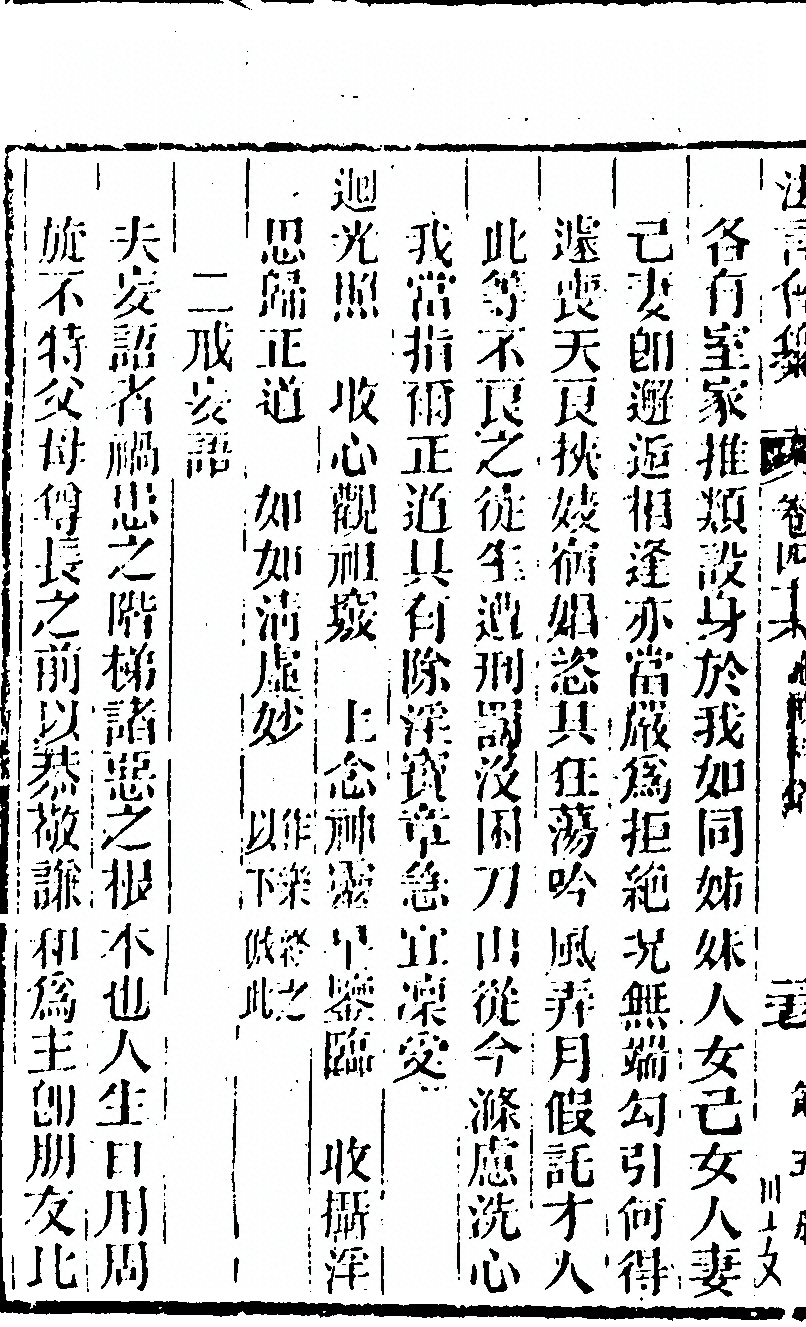 各有室家推類設身於我如同姊妹人女己女人妻
己妻卽邂逅相逢亦當嚴爲拒絶况無端勾引何得
遽喪天良挾妓宿娼恣其狂蕩吟風弄月假託才人
此等不良之徒生遭刑罰沒困刀山從今滌慮洗心
我當指爾正道具有除淫寶章急宜凜受
迴光照 收心觀祖竅 上念神靈早鑒臨 收攝淫
思歸正道 如如淸虛妙 作樂終之以下倣此
二戒妄語
夫妄語者禍患之階梯諸惡之根本也人生日用周
旋不特父母尊長之前以恭敬謙和爲主卽朋友比